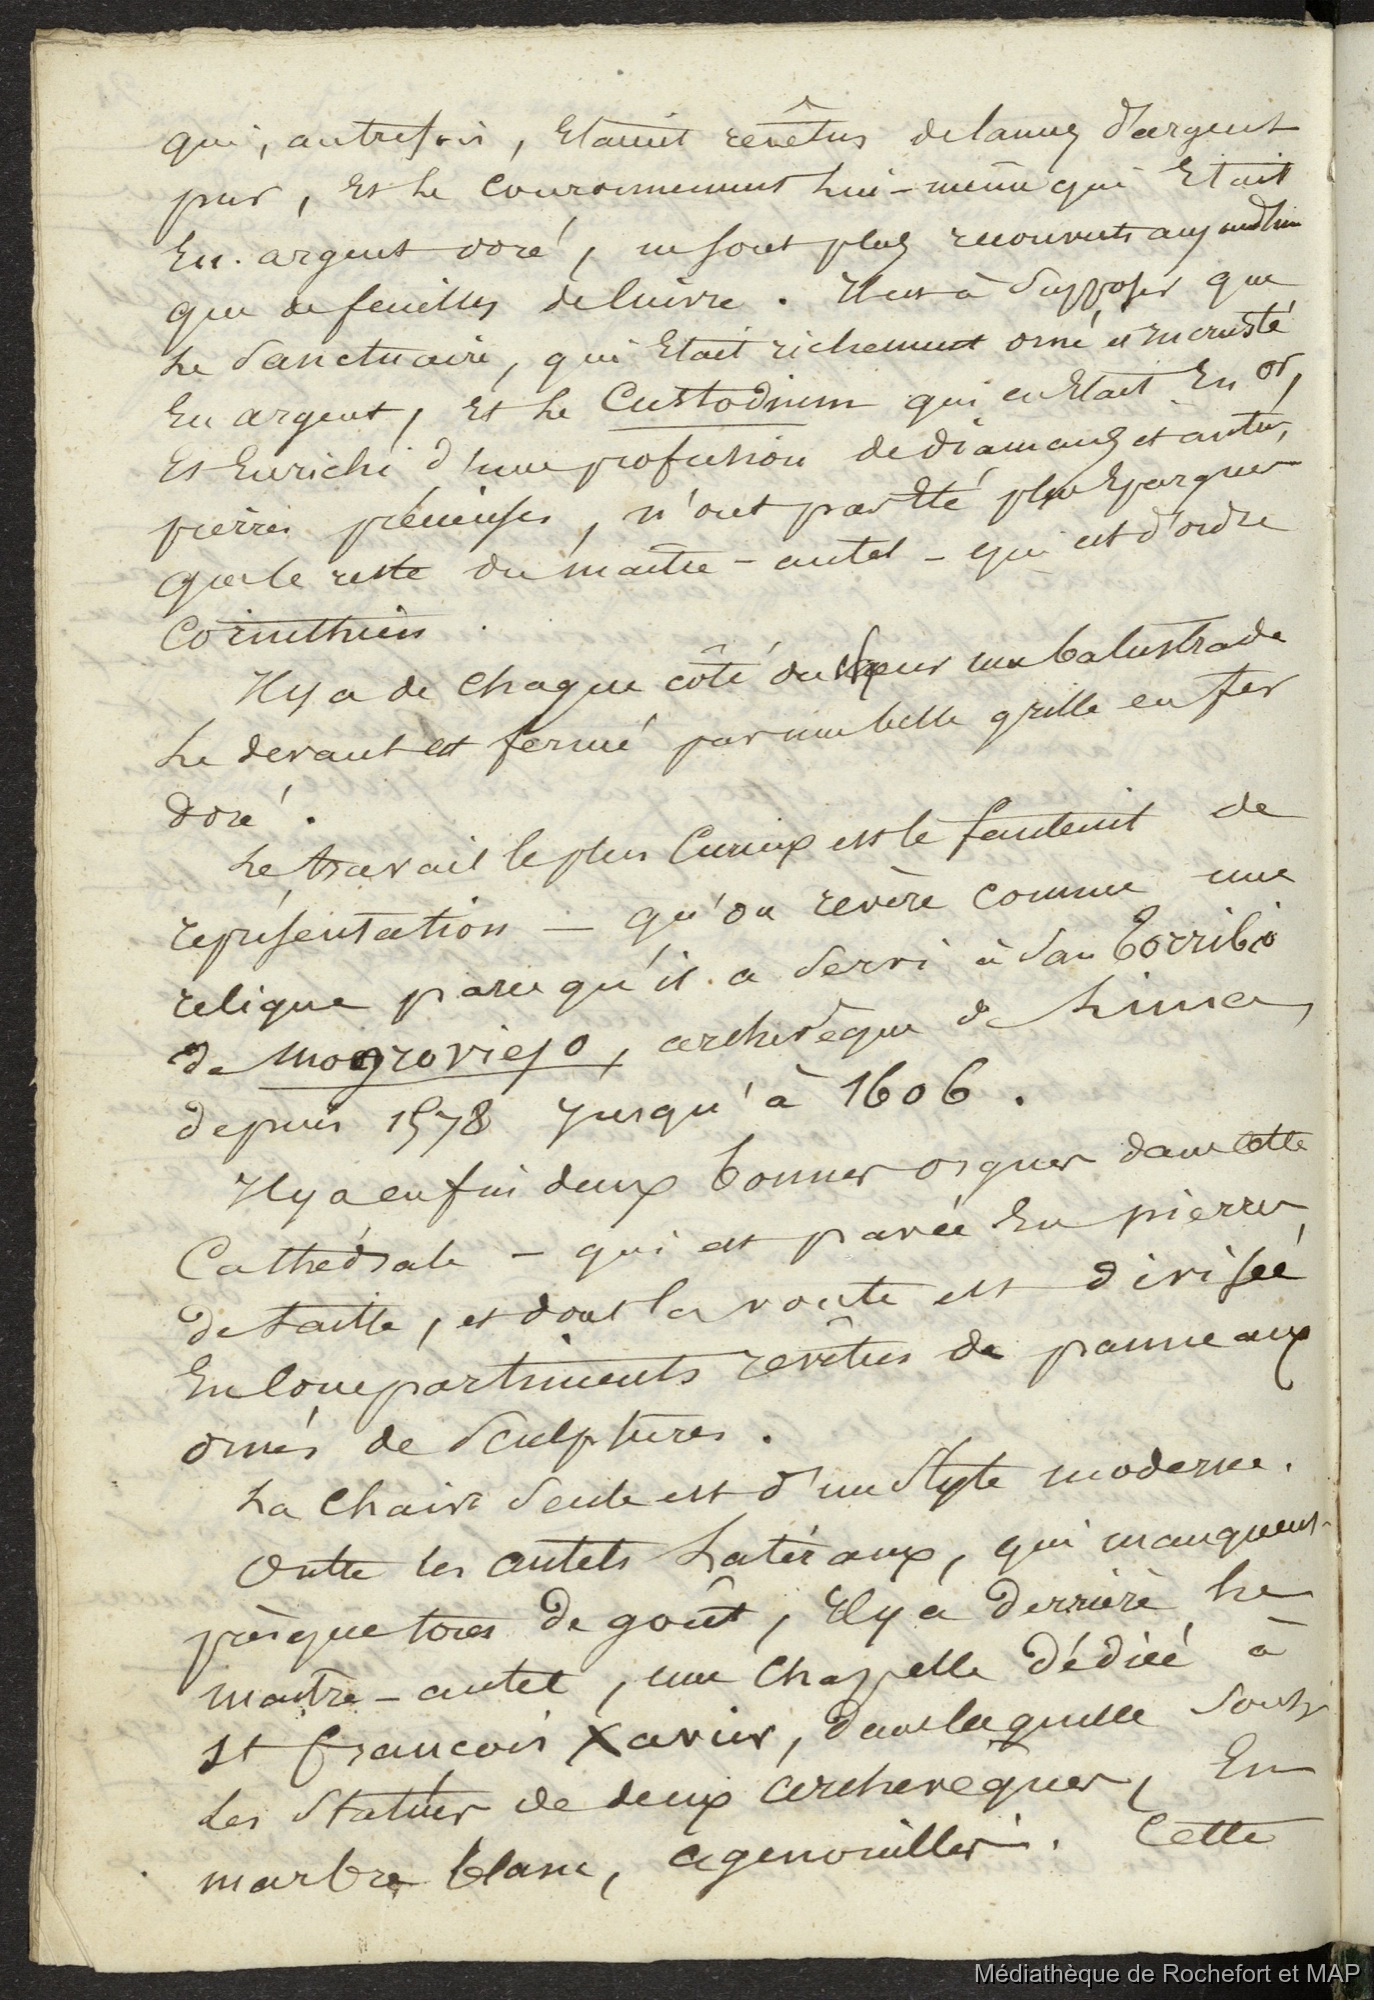 qui, autrefois, Etaient revêtus de lames d'argent
pur, Et le couronnement lui-même qui Etait
En argent doré, ne sont plus recouverts aujourd'hui
que de feuilles de cuivre. Il est à supposer que
le Sanctuaire, qui Etait richement orné et incrusté
En argent, Et le Custodium qui en Etait En or,
Et Enrichi d'une profusion de diamans et autres
pierres précieuses, n'ont pas Eté plus Epargnés
que le reste du maître-autel - qui est d'ordre
Corinthien.
Il y a de chaque côté du Chœur une balustrade
Le devant est fermé par une belle grille en fer
doré.
Le travail le plus Curieux est le fauteuil de
représentation — qu'on revère comme une
relique parcequ'il a Servi à San Torribio
de Mogroviejo, archevêque de Lima,
depuis 1578 Jusqu'à 1606.
Il y a enfin deux bonnes orgues dans cette
Cathédrale - qui est pavée En pierres
de taille, et dont la voute est divisée
En Compartiments revêtus de panneaux
ornés de Sculptures.
La Chaire Seule est d'un Style moderne.
Outre les autels Latéraux, qui manquent
présque tous de goût, Il y a derrière le
maitre-autel, une Chapelle dédiée à
St François Xavier, dans laquelle Sont
les Statues de deux archevêques, En
marbre blanc, agenouillés. Cette
Médiathèque de Rochefort et MAP